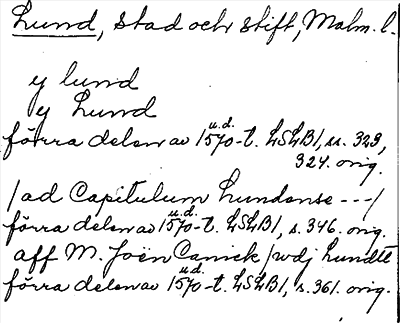 Lund, stad och stift, Malm. l.
y lund
y Lund
förra delen av 1570-t. u.d. LSLB1, ss. 323,
324. orig.
/ad Capitulum Lundense ---/
förra delen av 1570-t. u.d. LSLB1, s. 346. orig.
aff M. Joen Canick /wdj Lundtt
förra delen av 1570-t. u.d. LSLB1, s. 361. orig.